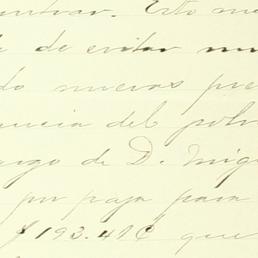 entrar. Esto me
de de evitar mu
do nuevas pre
uencia del polv
argo de D. Migu
por paja para
$193.41¢ que